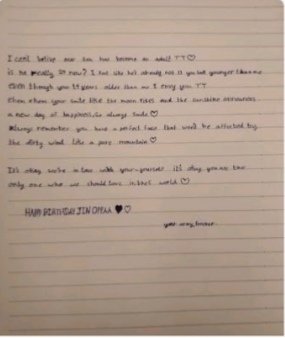 I can't belive our Jin has become an adult TT♡
is he really 29 now? I feel like he's already not 29 but younger than me
Even though you 14 years older than me I envy you TT
when you smile like the moon rises and the sunshine announces
a new day of happiness. So always smile♡
Always remember you have a perfect face that won't be affected by
the dirty wind like a pure mountain♡
It's okay we're in love with your-yourself it's okay you are the
only one who we should love in this world♡
HAPPY BIRTHDAY JIN OPPAA ♥♡
your army, forever